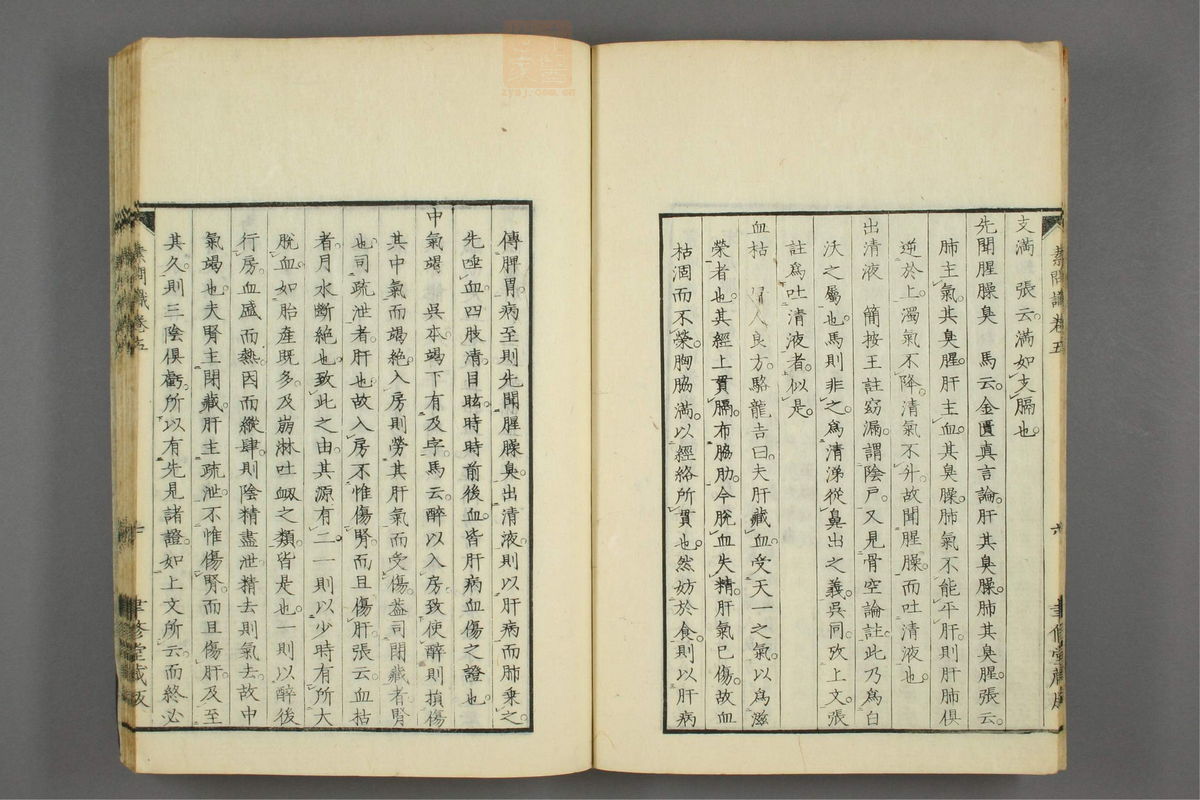 素問識卷五
六
聿修堂藏版
支滿 張云滿如支膈也
先聞腥臊臭 馬云金匱真言論肝其臭臊肺其臭腥張云
肺主氣其臭腥肝主血其臭臊肺氣不能平肝則肝肺俱
逆於上濁氣不降清氣不升故聞腥臊而吐清液也
出清液 簡按王註窈漏謂陰戶又見骨空論註此乃爲白
沃之屬也馬則非之爲清涕從鼻出之義吳同攷上文張
註爲吐清液者似是
血枯 人良方駱龍吉曰夫肝藏血受天一之氣以爲滋
榮者也其經上貫膈布脇肋今脫血失精肝氣已傷故血
枯涸而不榮胸脇滿以經絡所貫也然妨於食則以肝病
傳脾胃病至則先聞腥臊臭出清液則以肝病而肺乘之
先唾血四肢清目眩時時前後血皆肝病血傷之證也
中氣竭 吳本竭下有及字馬云醉以入房致使醉則損傷
其中氣而竭絶入房則勞其肝氣而受傷蓋司閉藏者腎
也司疏泄者肝也故入房不惟傷腎而且傷肝張云血枯
者月水斷絶也致此之由其源有二一則以少時有所大
脫血如胎產既多及崩淋吐衂之類皆是也一則以醉後
行房血盛而熱因而縱肆則陰精盡泄精去則氣去故中
氣竭也夫腎主閉藏肝主疏泄不惟傷腎而且傷肝及至
其久則三陰俱虧所以有先見諸證如上文所云而終必
素問識卷五
聿修堂藏版
zysj.com.cn